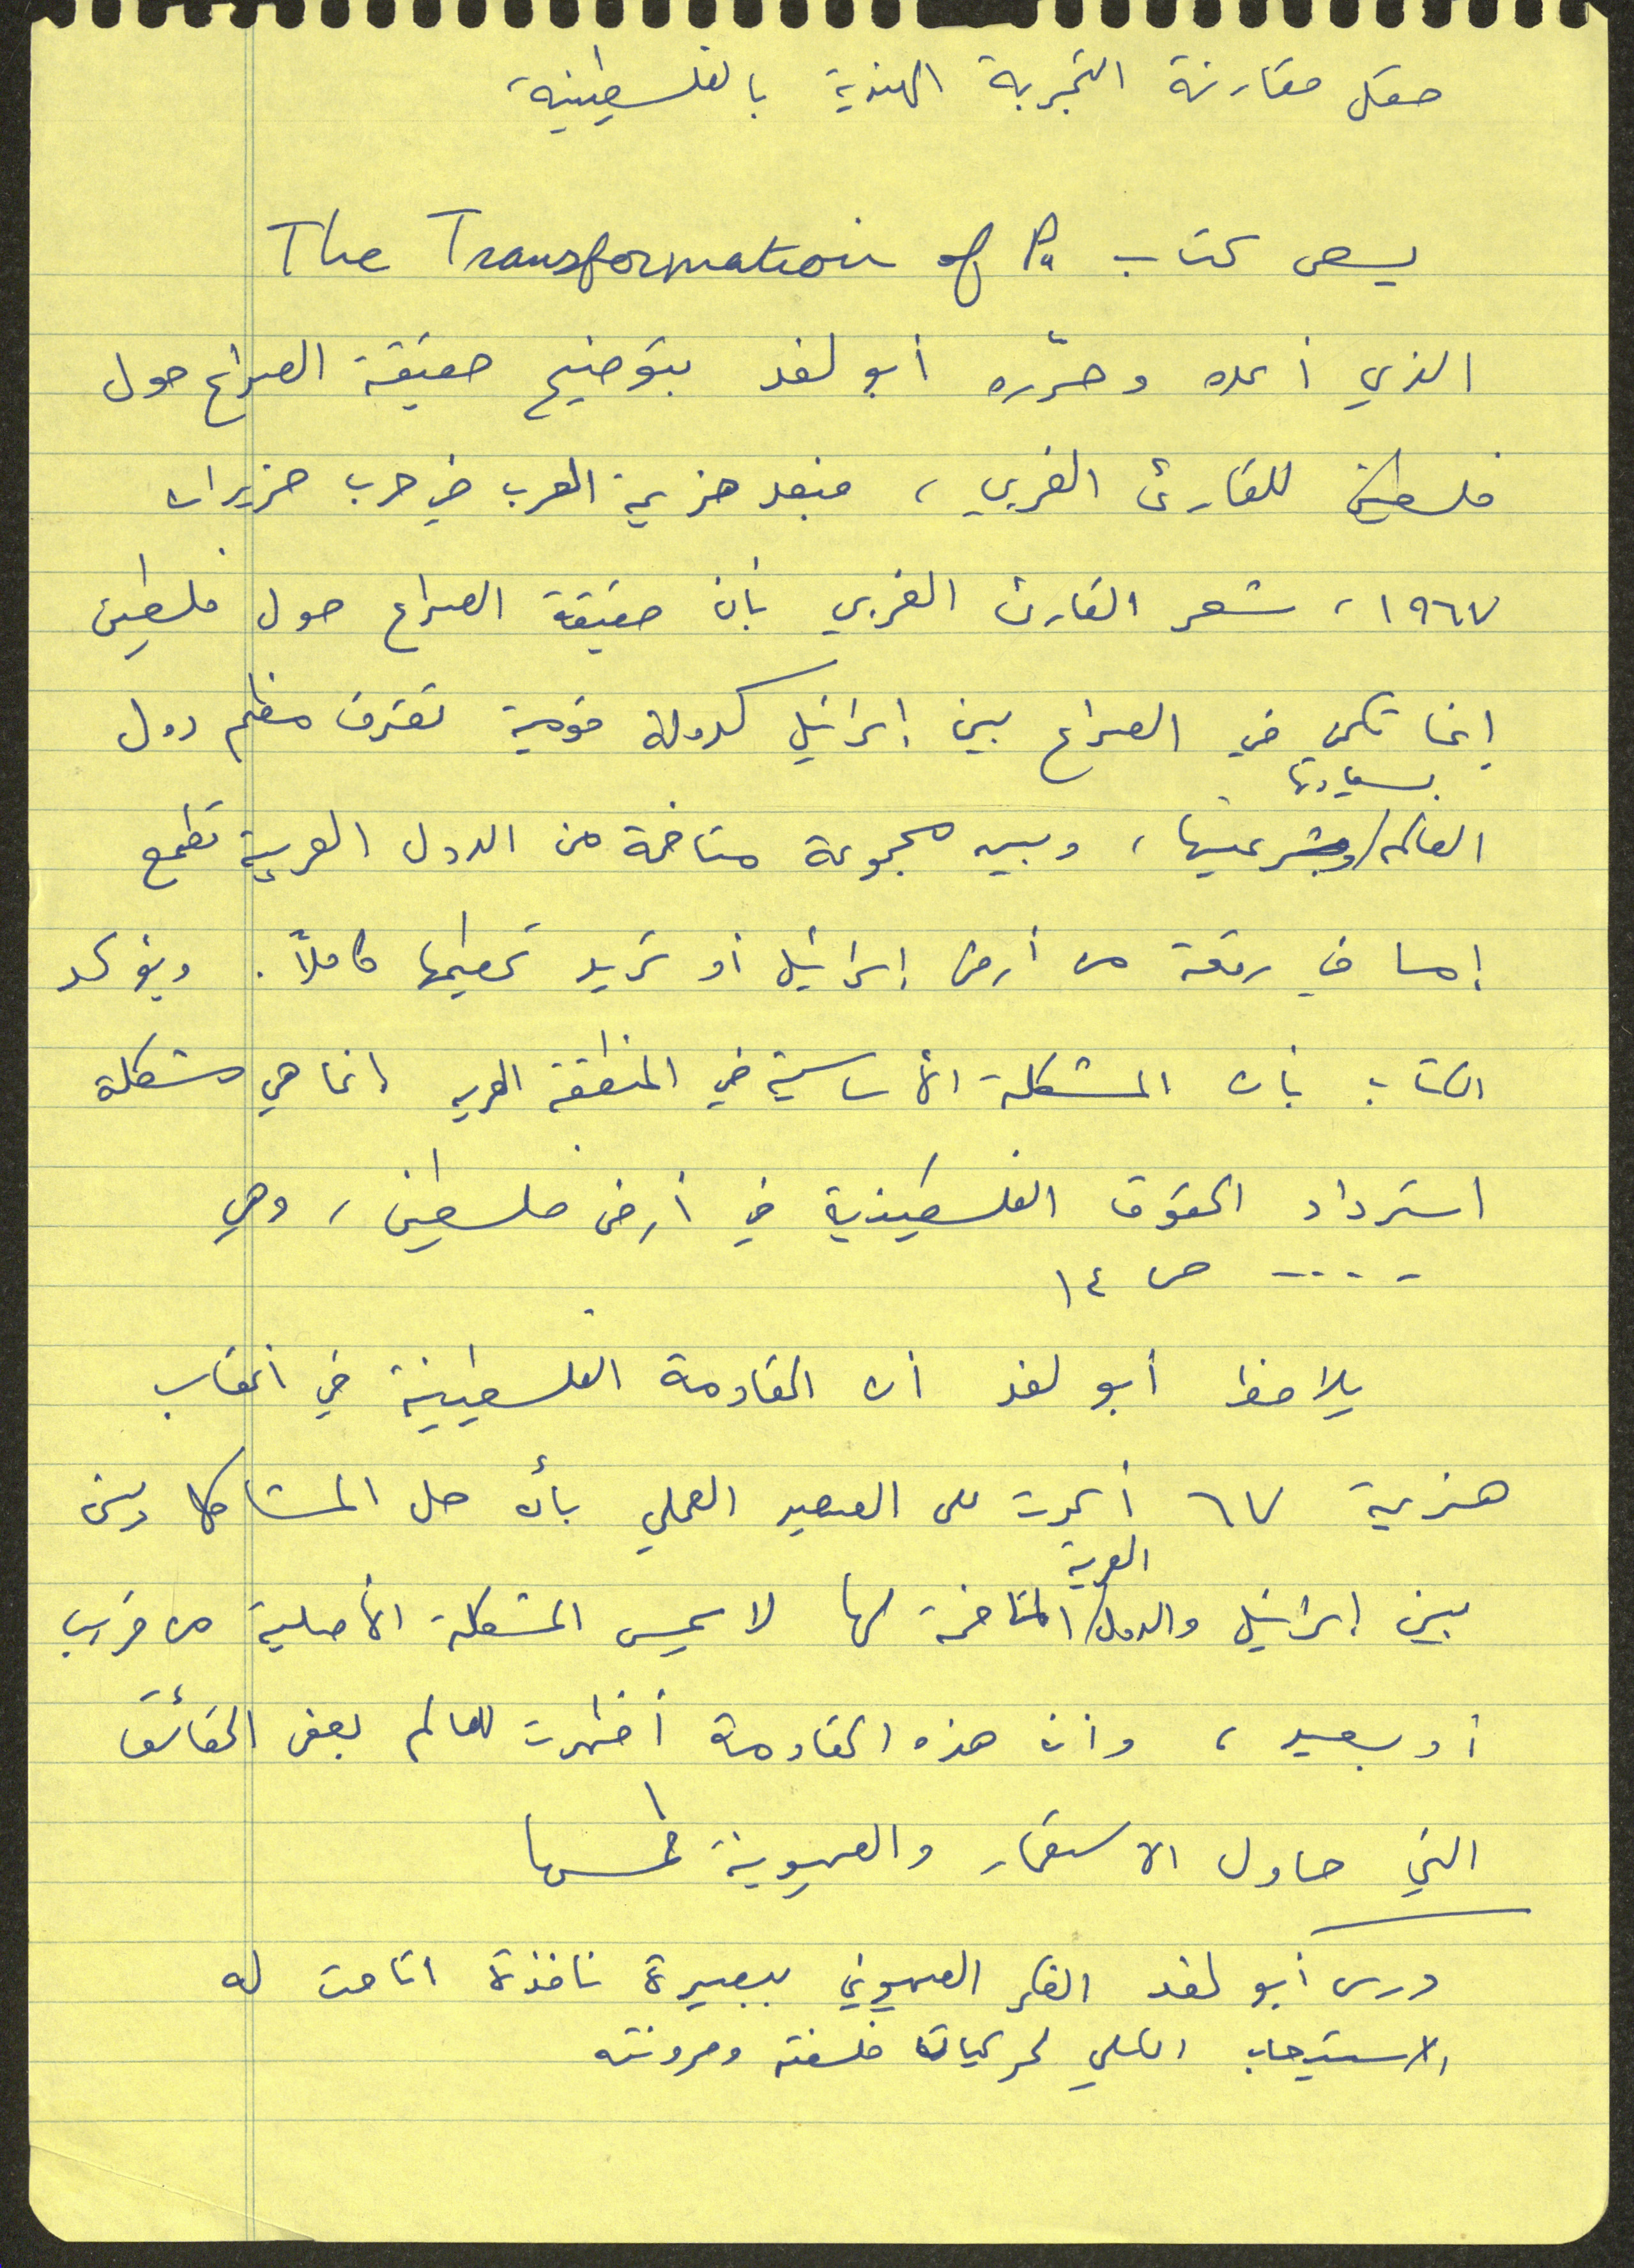 حقل مقارنة التجربة الهندية بالفلسطينية،
يسعى كتاب The Transformation of Pa
الذي أعده وحرّره أبو لغد بتوضيح حقيقة الصراع حول
فلسطين للقارئ الغربي، فبعد هزيمة العرب في حرب حزيران
١٩٦٧، شعر القارئ الغربي بأن حقيقة الصراع حول فلسطين
إنما تكمن في الصراع بين إسرائيل كدولة قومية تعترف معظم دول
بسيادتها
العالم / وبشرعيتها، وبين مجموعة متاخمة من الدول العربية تطمع
إما في رقعة من أرض إسرائيل أو تريد تحطيمها كاملاً. ويؤكد
الكتاب بأن المشكلة الأساسية في المنطقة العربية إنما هي مشكلة
استرداد الحقوق الفلسطينية في أرض فلسطين، وهي
- . . . - ص ١٤
يلاحظ أبو لغد أن المقاومة الفلسطينية في أعقاب
هزيمة ٦٧ أكدت على الصعيد العملي بأن حل المشاكل
العربية
بين إسرائيل والدول / المتاخمة لها لا يمس المشكلة الأصلية من قريب
أو بعيد، وأن هذه المقاومة أظهرت للعالم بعض الحقائق
التي حاول الاستعمار والصهيونية طمسها
درس أبو لغد الفكر الصهيوني ببصيرة نافذة أتاحت له
الاستيعاب الكلي لحركيات فلسفته ومرونته